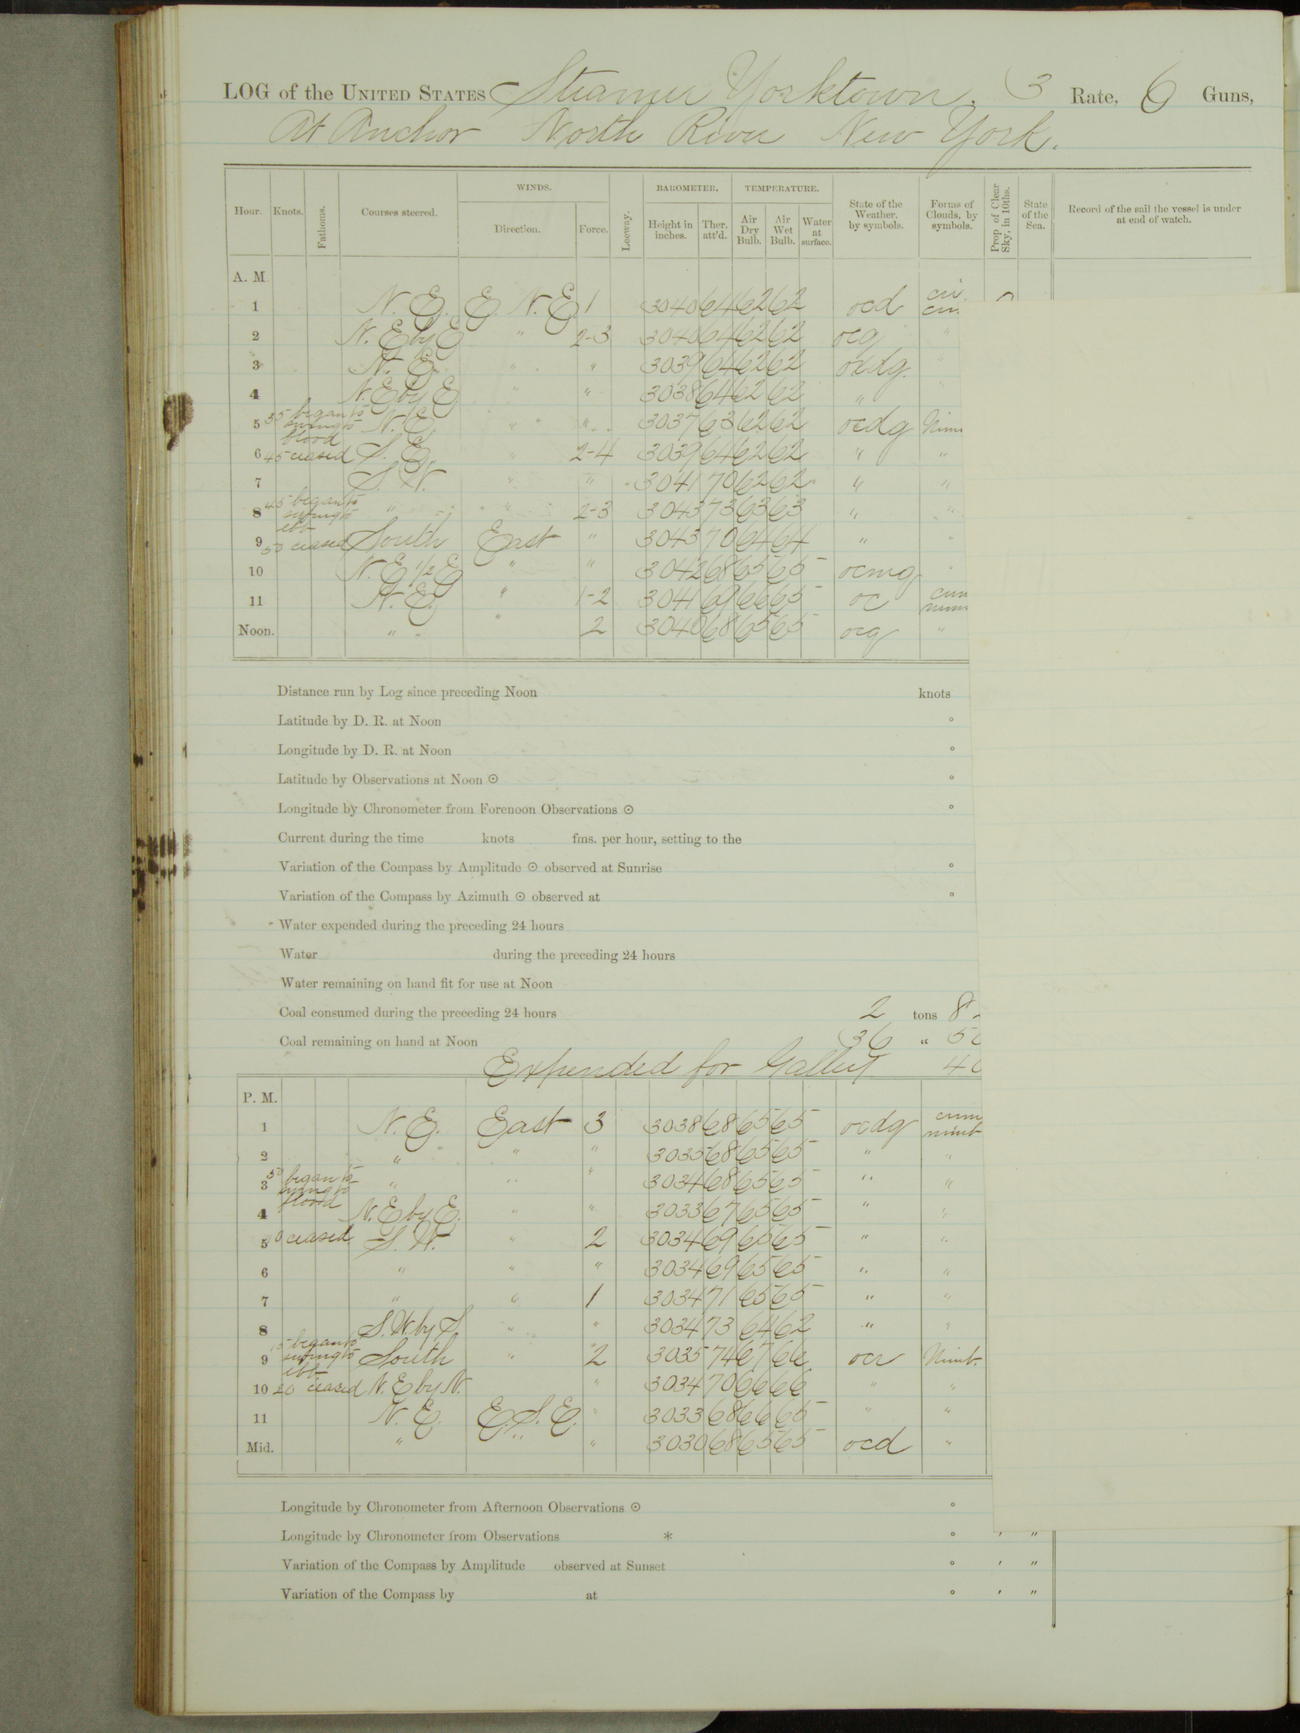 LOG of the UNITED STATES Steamer Yorktown. 3 Rate, 6 Guns,
At Anchor North River New York.
Hour. Knots. Fathoms. Courses steered. WINDS. Direction. Force. Leeway. BAROMETER. Height in inches. Ther. att'd. TEMPERATURE. Air Dry Bulb. Air Wet Bulb. Water at surface. State of the Weather, by symbols. Forms of Clouds, by symbols. Prop. of Clear Sky, in 10ths. State of the Sea. Record of the sail the vessel is under at end of watch.
A. M.
1 N. E. E N. E 1 3040 64 62 62 ocd
2 N. E by E " 2-3 3040 64 62 62 ocg "
3 N. E. " " 3039 64 62 62
4 N. E by E " " 3038 64 62 62 "
5 35 began to swing to flood N. E. " " 3037 63 62 62 ocdg
6 45 ceased S. E. " 2-4 3039 64 62 62 " "
7 S. W. " " 3041 70 62 62 " "
8 45 began to swing to ebb " " 2-3 3043 73 63 63 " "
9 50 ceased South East " 3043 70 64 64 " "
10 N. E 1/2 E " " 3042 68 65 65 ocmg "
11 N. E. " 1-2 3041 69 66 65 oc
Noon. " " 2 3040 68 65 65 ocg "
Distance run by Log since preceding Noon knots
Latitude by D. R. at Noon °
Longitude by D. R. at Noon °
Latitude by Observations at Noon ☉ °
Longitude by Chronometer from Forenoon Observations ☉ °
Current during the time knots fms. per hour, setting to the
Variation of the Compass by Amplitude ☉ observed at Sunrise °
Variation of the Compass by Azimuth ☉ observed at °
Water expended during the preceding 24 hours
Water during the preceding 24 hours
Water remaining on hand fit for use at Noon
Coal consumed during the preceding 24 hours 2 tons 8
Coal remaining on hand at Noon 36 " 5
Expended for Galley 4
P. M.
1 N. E. East 3 3038 68 65 65 ocdg
2 " " " 3035 68 65 65 " "
3 50 began to swing to flood " " " 3034 68 65 65 " "
4 N. E by E. " " 3033 67 65 65 " "
5 ceased S. W. " 2 3034 69 65 65 " "
6 " " " 3034 69 65 65 " "
7 " " 1 3034 71 65 65 " "
8 S. W. by S. " " 3034 73 64 62 " "
9 began to swing to ebb South " 2 3035 74 67 66 ocr Nimb.
10 20 ceased N. E by N. " 3034 70 66 66 " "
11 N. E. E. S. E. " 3033 68 66 65 " "
Mid. " " " 3030 68 65 65 ocd "
Longitude by Chronometer from Afternoon Observations ☉ °
Longitude by Chronometer from Observations * ° ' "
Variation of the Compass by Amplitude observed at Sunset ° ' "
Variation of the Compass by at ° ' "